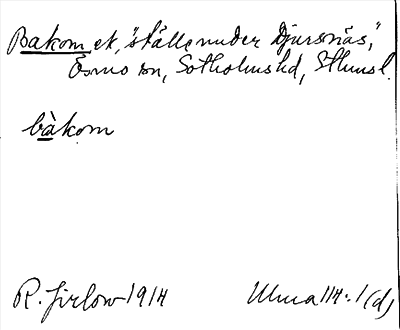 Bakom ek, "ställe under Djursnäs",
Ösmo sn, Sotholms hd, Sthms l.
båkom
R. Jirlow 1914 Ulma 114:1 (d)